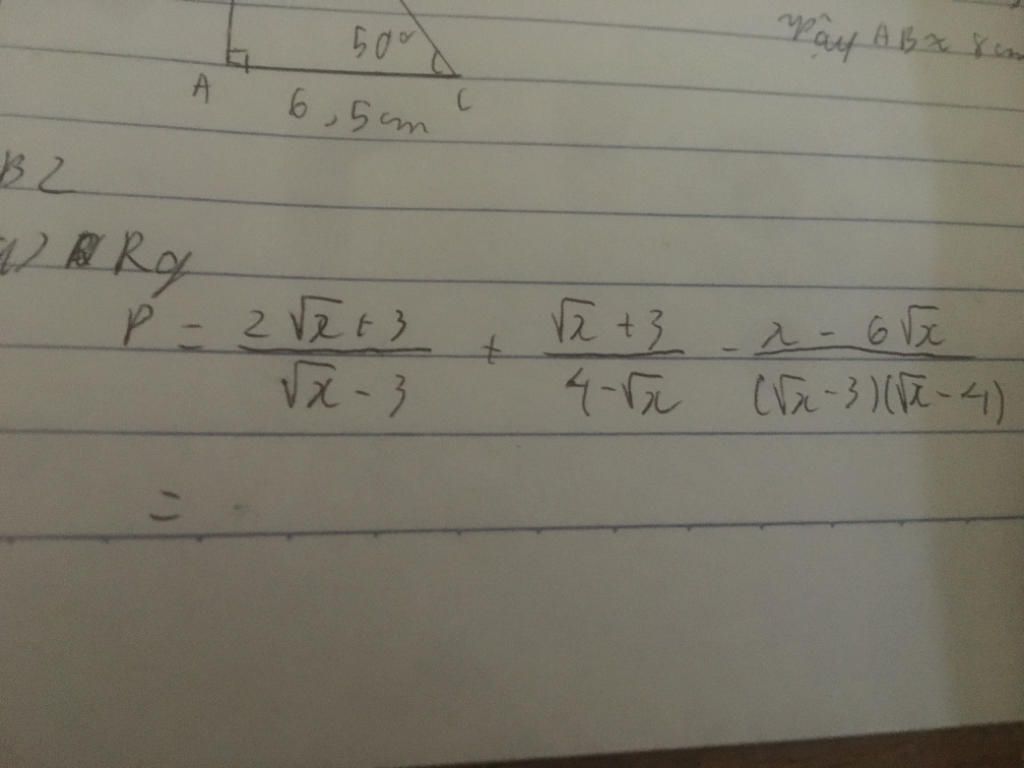 Vậy AB ≈ 8cm
50°
A
C
6,5cm
B2
a) Rg
P = \frac{2\sqrt{x}+3}{\sqrt{x}-3} + \frac{\sqrt{x}+3}{4-\sqrt{x}} - \frac{x-6\sqrt{x}}{(\sqrt{x}-3)(\sqrt{x}-4)}
=